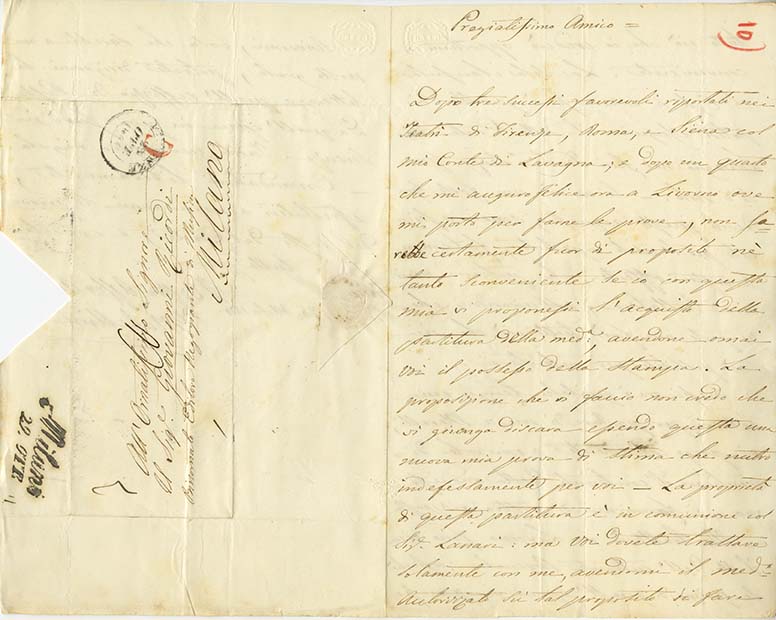 10
Pregiatissimo Amico =
Dopo tre successi favorevoli riportati nei
Teatri di Firenze, Roma, e Siena col
mio Conte di Lavagna; e dopo un quarto
che mi auguro felice ora a Livorno ove
mi porto per farne le prove, non sa
rebbe certamente fuor di proposito nè
tanto sconveniente se io con questa
mia vi proponessi l'acquisto della
partitura della med.a, avendone omai
voi il possesso della Stampa. La
proposizione che vi faccio non credo che
vi giunga discara essendo questa una
nuova mia prova di stima che nutro
indefessamente per voi — La proprietà
di questa partitura è in comunione col
Sig.r Lanari: ma voi dovete trattare
solamente con me, avendomi il med.o
autorizzato su tal proposito di fare
All' Ornatissimo Signore
Il Sig.e Giovanni Ricordi
Editore Negoziante di Musica
Milano
Milano
29. OTT.